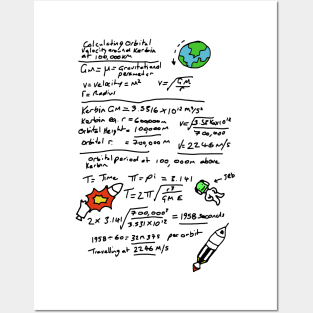 Calculating Orbital
Velocity around Kerbin
at 100,000km
GM = μ = Gravitational
parameter
V = Velocity = M²
V = √GM/r
r = Radius
Kerbin GM = 3.5316 x10¹² m³/s²
Kerbin eq. r = 600000m
Orbital Height = 100000m
V = √3.5316x10¹²/700,000
Orbital r. = 700,000m
V = 2246 m/s
Orbital period at 100,000m above
Kerbin
T = Time π = Pi = 3.141
Jeb
T = 2π √r³/GME
2 x 3.141 √700,000³/3.531 x10¹² = 1958 Seconds
1958 ÷ 60 = 32m 37s per orbit
Travelling at 2246 M/S